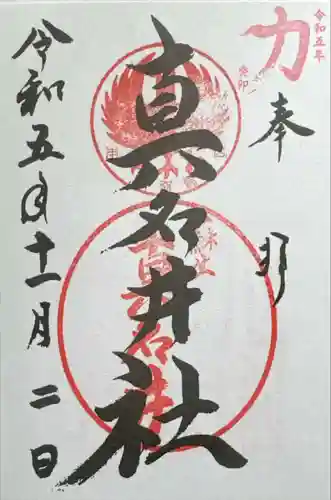 奉拝
真名井社
令和五年十一月二日
力
令和五年